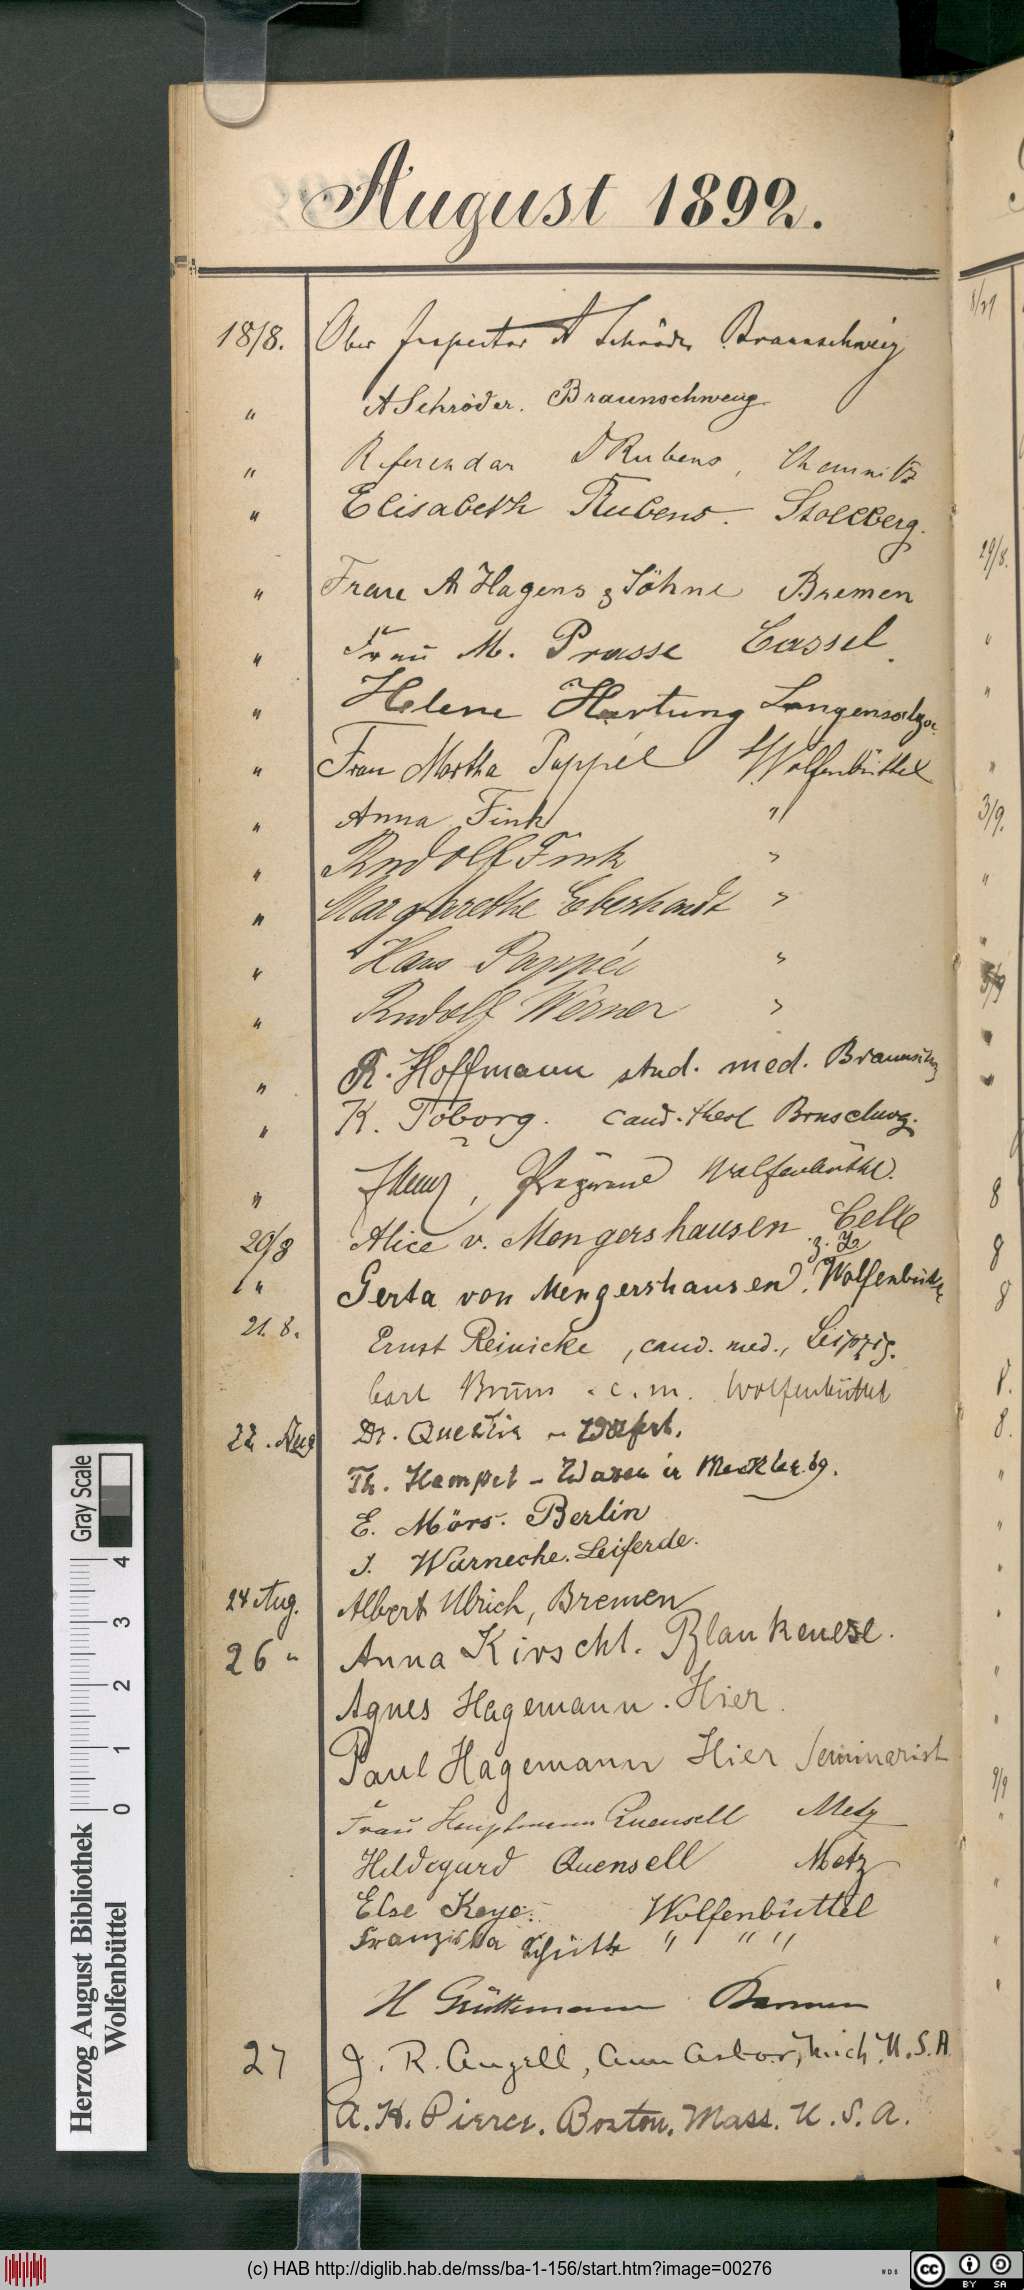 August 1892.
18/8. Ober Inspector A Schröder Braunschweig
" A Schröder. Braunschweig
" Referendar D Rubens, Chemnitz
" Elisabeth Rubens. Stollberg.
" Frau A Hagens & Söhne Bremen
" Frau M. Prasse Cassel.
" Helene Hartung Langensalza.
" Frau Martha Pappéé Wolfenbüttel
" Anna Fink "
" Rudolf Fink "
" Margarethe Eberhardt "
" Hans Pappée "
" Rudolf Werner "
" R. Hoffmann stud. med. Braunschg
" K. Toborg. cand. theol Brnschwg.
" Wolfenbüttel.
20/8 Alice v. Mengershausen. Celle
z. Z.
" Gerta von Mengershausen. Wolfenbüttel
21. 8. Ernst Reinicke, cand. med., Leipzig.
Carl Bruns. c. m. Wolfenbüttel
22. Aug Dr. Quentin
Th. Hempel - Waren in Mecklenbg.
E. Mörs. Berlin
J. Warneche. Leiferde.
24 Aug. Albert Ulrich, Bremen
26 " Anna Kirscht. Blankenese.
Agnes Hagemann. Hier.
Paul Hagemann Hier Seminarist
Frau Hauptmann Quensell Metz
Hildegard Quensell Metz
Else Keye. Wolfenbüttel
Franziska Schütte " " "
H Grüttemann Barmen
27 J. R. Angell, Ann Arbor, Mich. U.S.A
A. H. Pierce. Boston, Mass. U. S. A.
8/29
29/8.
"
"
"
3/9.
"
"
5/9
"
"
8
8
8
8.
8.
"
"
"
"
"
"
9/9
"
"
"
"
Gray Scale
0 1 2 3 4
Herzog August Bibliothek
Wolfenbüttel
(c) HAB http://diglib.hab.de/mss/ba-1-156/start.htm?image=00276
WDB
cc BY SA